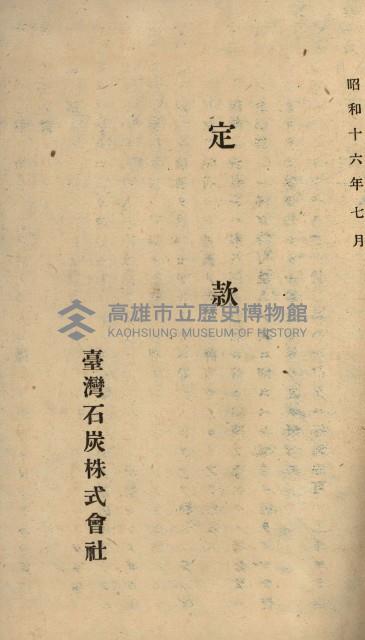 昭和十六年七月
定款
臺灣石炭株式會社
高雄市立歷史博物館
KAOHSIUNG MUSEUM OF HISTORY